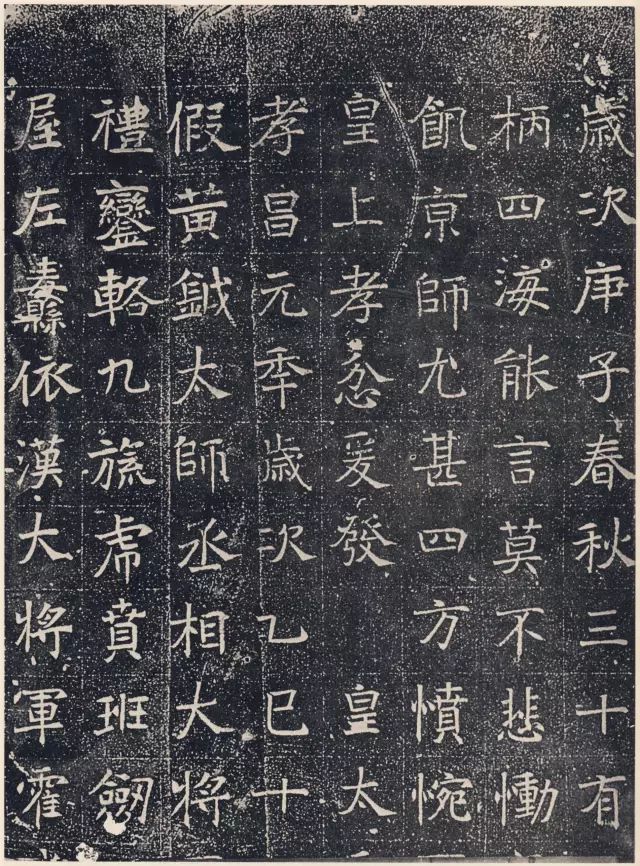 歲次庚子春秋三十有
柄四海能言莫不悲慟
飢京師尤甚四方憤惋
皇上孝忿爰發 皇太
孝昌元年歲次乙巳十
假黃鉞太師丞相大將
禮鑾輅九旒虎賁班劒
屋左纛依漢大將軍霍